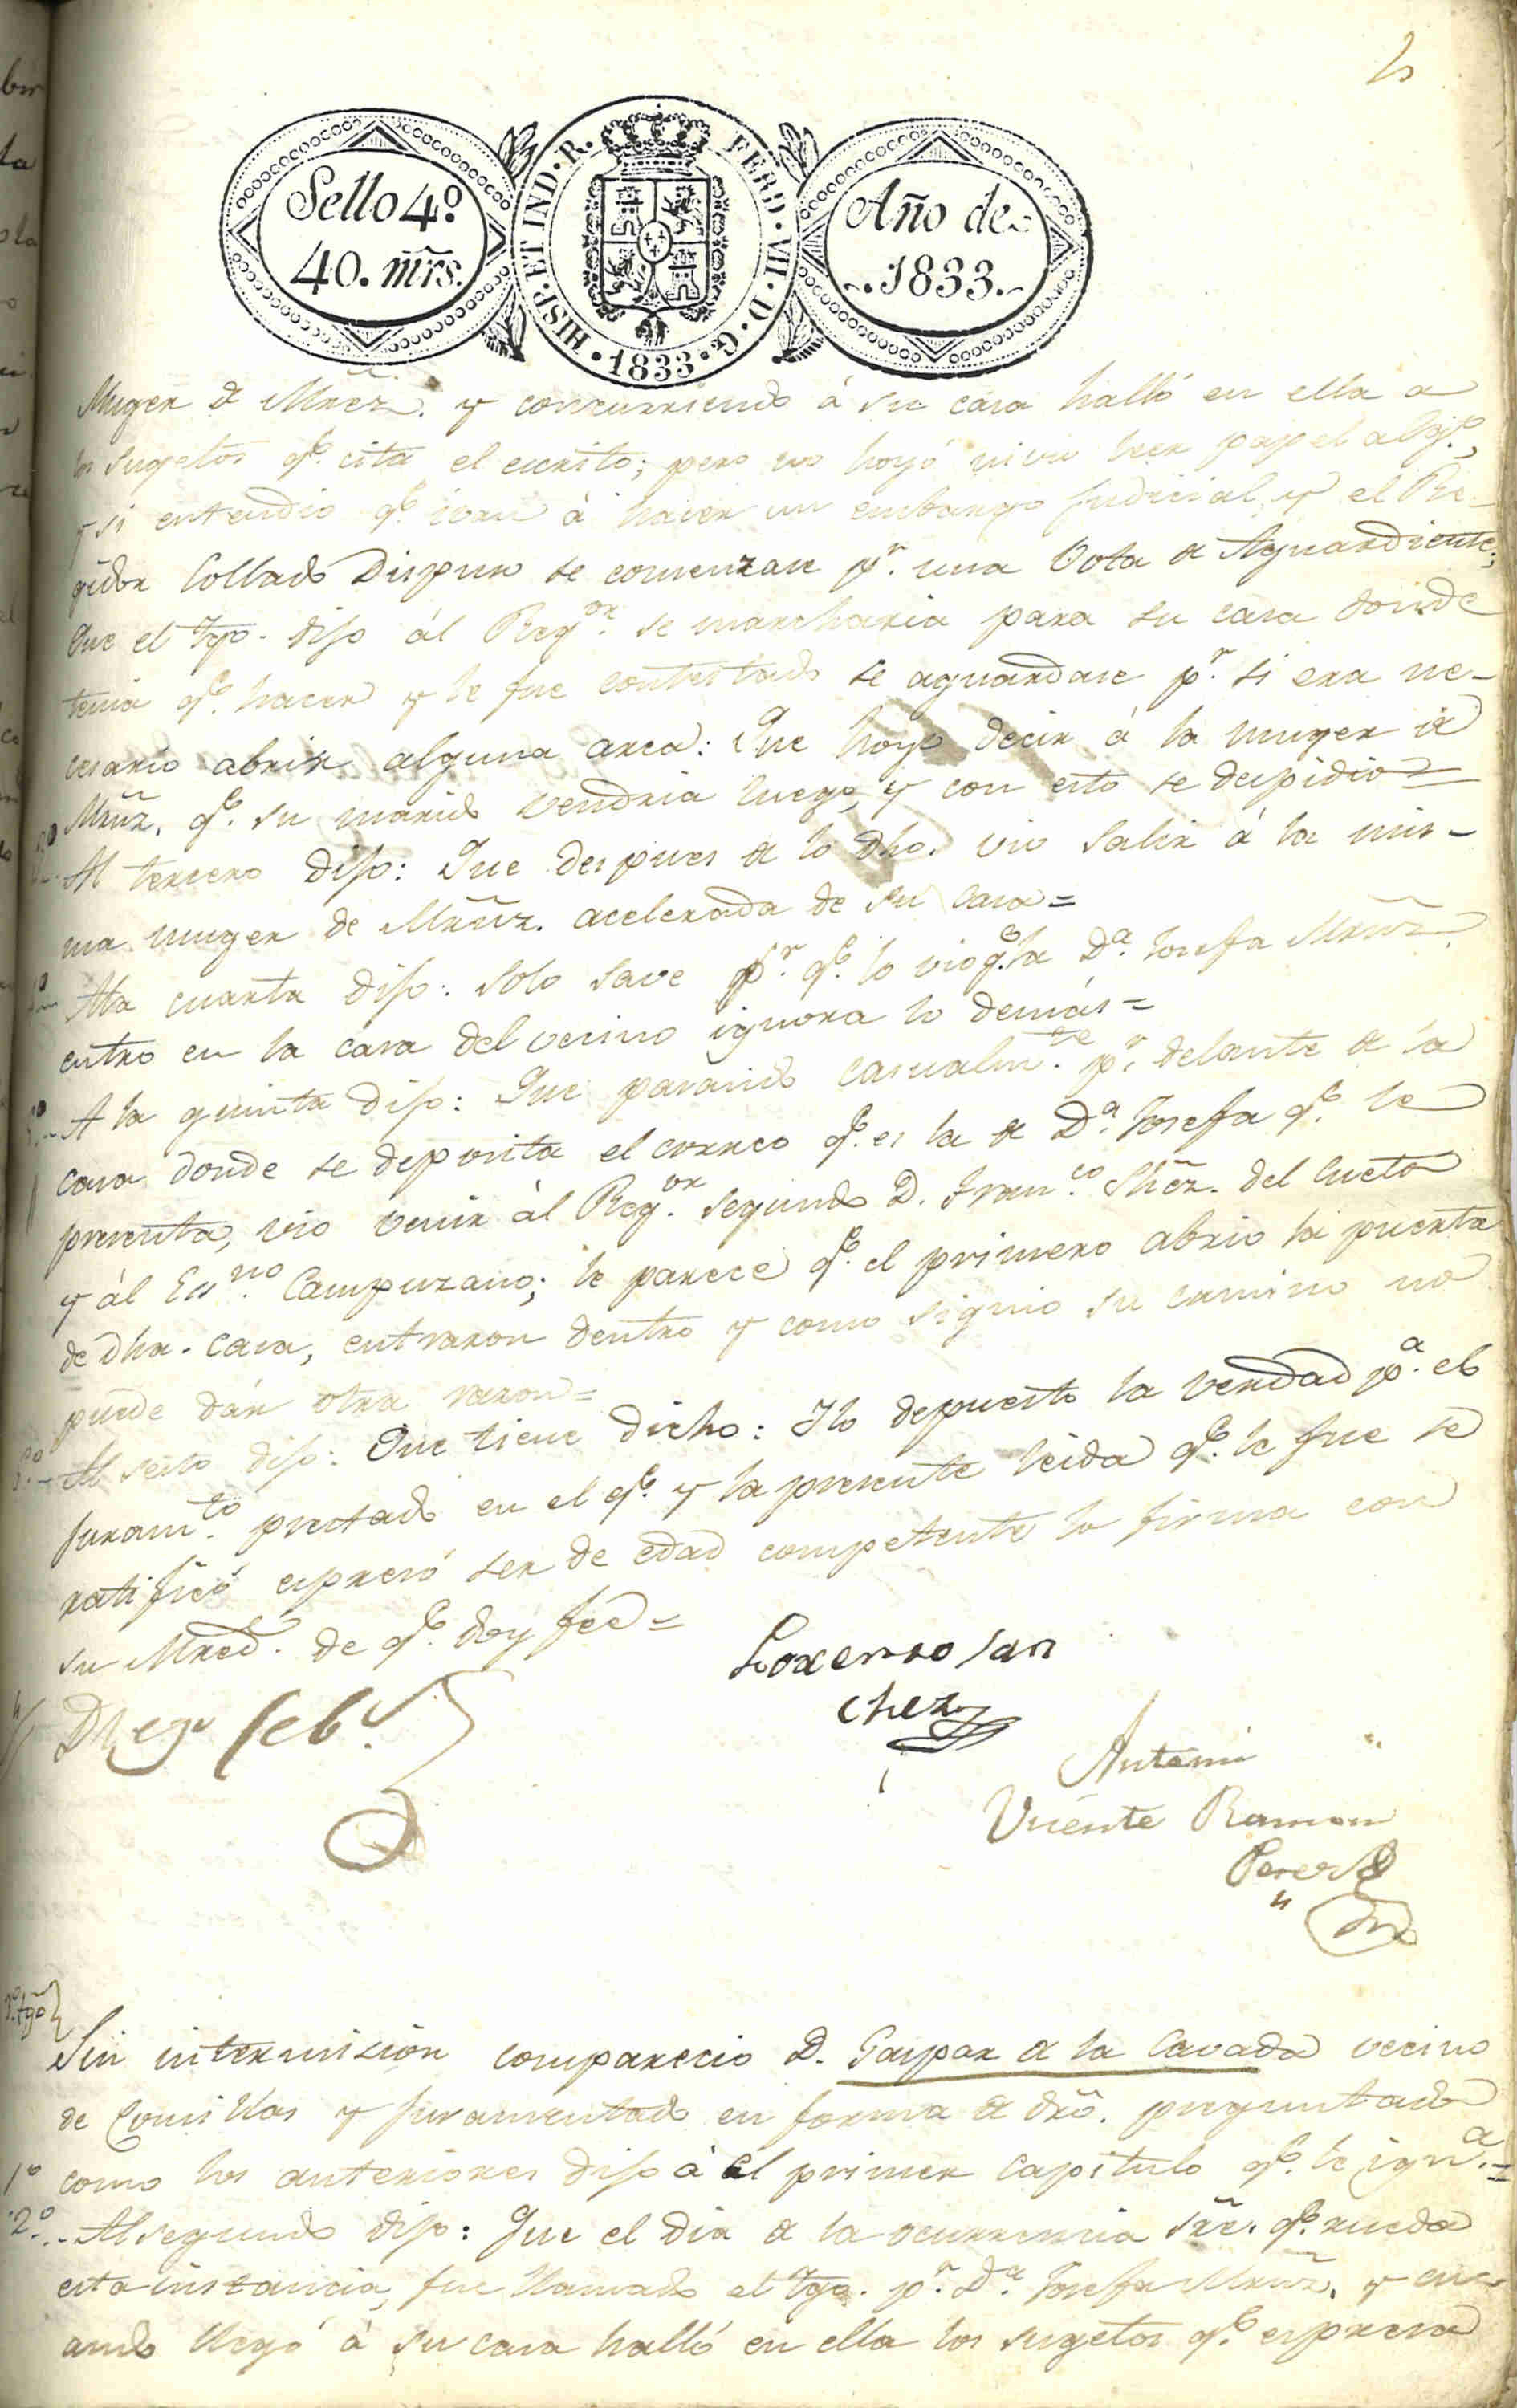 Sello 4º.
40. mrs.
HISP. ET IND. R. FERD. VII. D. G. 1833.
Año de
1833.
Muger de Mrez. y concurriendo á su casa halló en ella a
los sugetos qe. cita el escrito; pero no hoyó leer papel algo.,
y si entendio qe. ivan á hacer un embargo judicial, y el Re-
gidor Collado Dispuso se comenzase pr. una Bota de Aguardiente;
Que el tgo. dijo ál Regor. se marcharia para su casa donde
tenia qe. hacer y le fue contestado se aguardase pr. si era ne-
cesario abrir alguna arca: Que hoyo decir á la muger de
Mrnz. qe. su marido vendria luego, y con esto se despidio=
Al tercero Dijo: Que despues de lo dho. vio salir á la mis-
ma muger de Mrnz. acelerada de su casa=
Ala cuarta dijo: solo save pr. qe. lo vio qe. la Da. Josefa Mrnz.
entro en la casa del vecino ignora lo demás=
A la quinta dijo: Que pasando casualmte. pr. delante de la
casa donde se deposita el correo qe. es la de Da. Josefa qe. le
presenta, vio venir ál Regor. segundo D. Franco. Shez. del Cueto
y ál Esno. Campuzano; le parece qe. el primero abrio la puerta
de dha. casa, entraron dentro y como siguio su camino no
puede dár otra razon=
Al sesto dijo: Que tiene dicho: Ylo depuesto la verdad pa. el
juramto. prestado en el qe. y la presente leida qe. le fue se
ratificó espresó ser de edad competente lo firma con
su Mrced. de qe. doy fee=
Lorenzo San
chez
Antemi
Vicente Ramon
Perez
3º. tgo
Sin intermision comparecio D. Gaspar de la Cavada vecino
de Comillas y juramentado en forma de dro. preguntado
1º como los anteriores dijo á el primer capitulo qe. le igna.=
2º.. Al segundo dijo: Que el dia de la ocurrencia sre. qe. rueda
esta instancia, fue llamado el tgo. pr. Da. Josefa Mrnz. y cu-
ando llegó á su casa halló en ella los sugetos qe. espresa